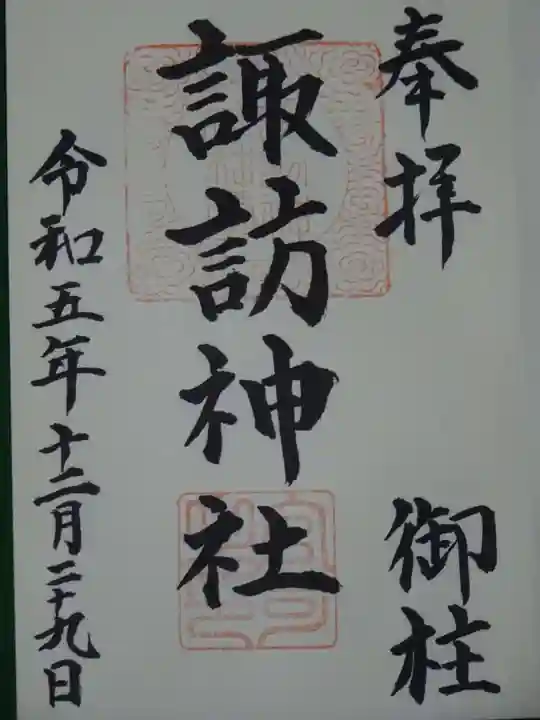 奉拝
御柱
諏訪神社
令和五年十二月二十九日